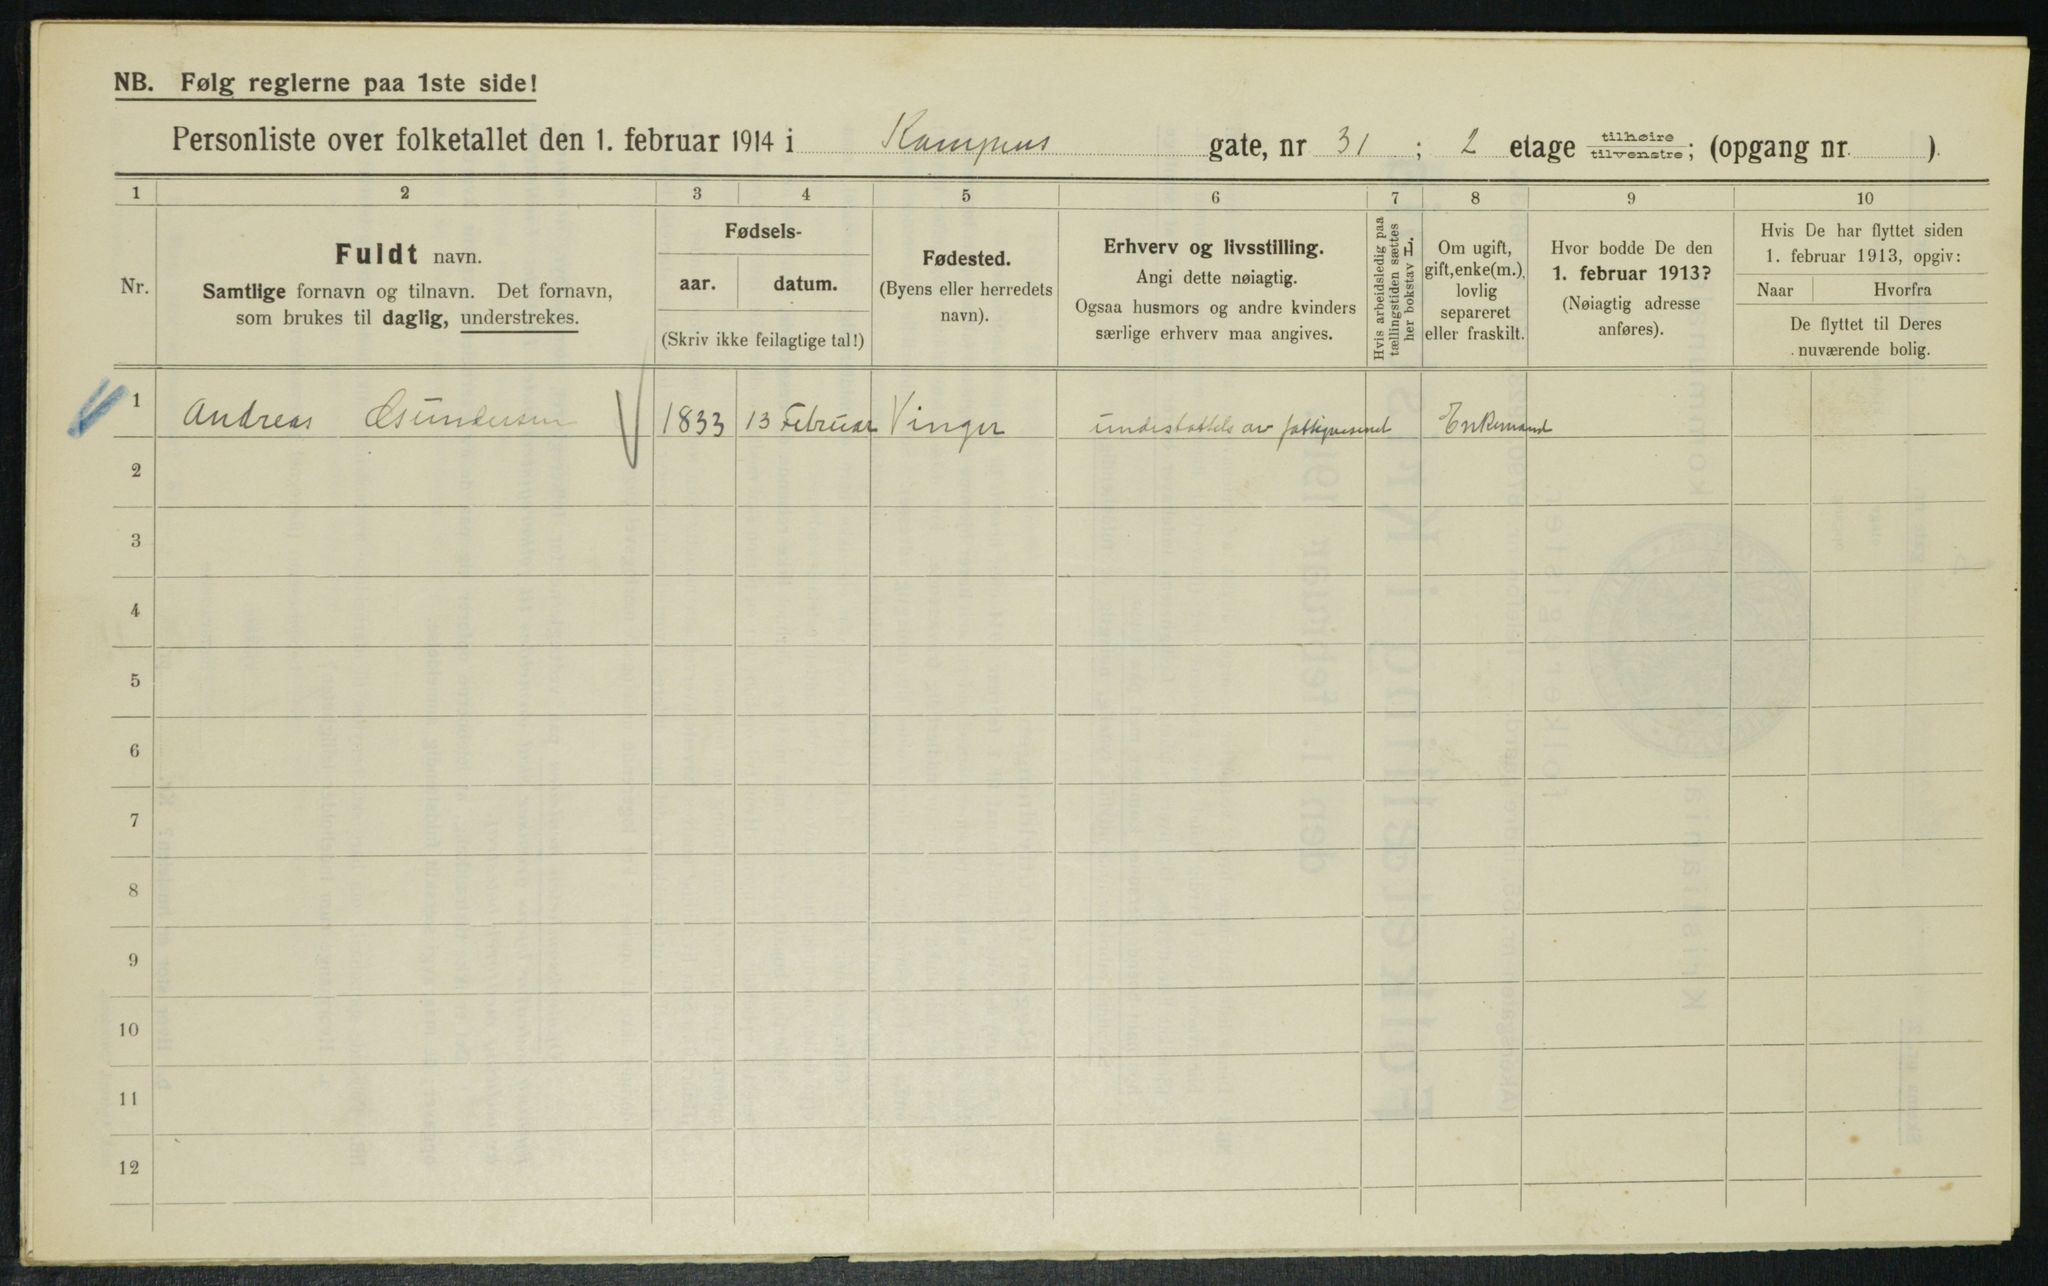 NB. Følg reglerne paa 1ste side!
Personliste over folketallet den 1. februar 1914 i Kampens gate, nr 31 ; 2 etage tilhøire tilvenstre; (opgang nr. ).
1 2 3 4 5 6 7 8 9 10
Nr.
Fuldt navn.
Samtlige fornavn og tilnavn. Det fornavn,
som brukes til daglig, understrekes.
Fødsels-
aar. datum.
(Skriv ikke feilagtige tal!)
Fødested.
(Byens eller herredets
navn).
Erhverv og livsstilling.
Angi dette nøiagtig.
Ogsaa husmors og andre kvinders
særlige erhverv maa angives.
Hvis arbeidsledig paa
tællingstiden sættes
her bokstav H.
Om ugift,
gift, enke(m.),
lovlig
separeret
eller fraskilt.
Hvor bodde De den
1. februar 1913?
(Nøiagtig adresse
anføres).
Hvis De har flyttet siden
1. februar 1913, opgiv:
Naar Hvorfra
De flyttet til Deres
nuværende bolig.
1 Andreas 1833 13 Februar Vinger av Enkemand
2
3
4
5
6
7
8
9
10
11
12